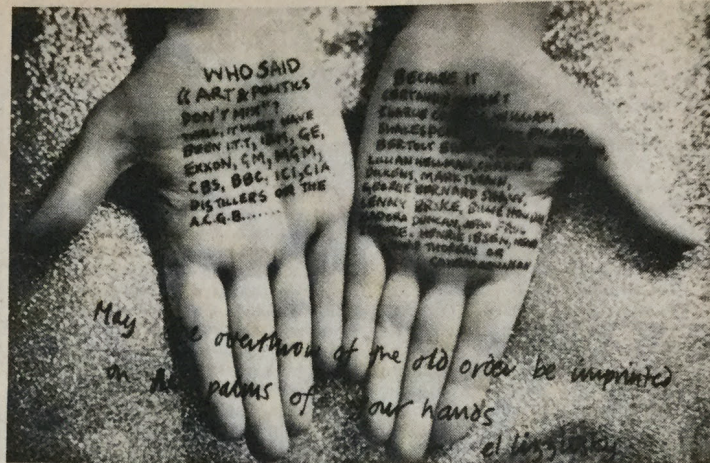 WHO SAID
"ART & POLITICS
DON'T MIX"?
WELL, IT MUST HAVE
BEEN I.T.T, IBM, GE,
EXXON, GM, MGM,
CBS, BBC, ICI, CIA
DISTILLERS OR THE
A.C.G.B.......
BECAUSE IT
CERTAINLY WASN'T
CHARLIE WILLIAM
BERTOLT
LILLIAN HELLMAN,
DICKENS, MARK TWAIN,
GEORGE BERNARD SHAW,
LENNY BRUCE, BILLIE HOLIDAY
ISADORA DUNCAN,
HENRIK IBSEN,
THOREAU OR
May the overthrow of the old order be imprinted
on the palms of your hands
el lissitzky